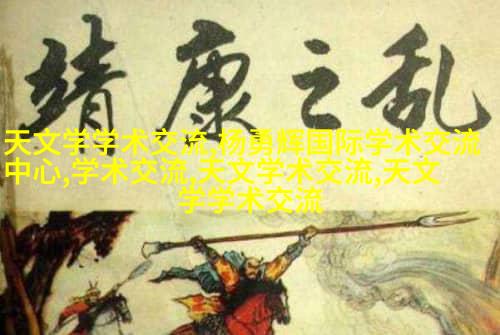 靖康之乱
天文学学术交流,杨勇辉国际学术交流
中心,学术交流,天文学术交流,天文
学学术交流